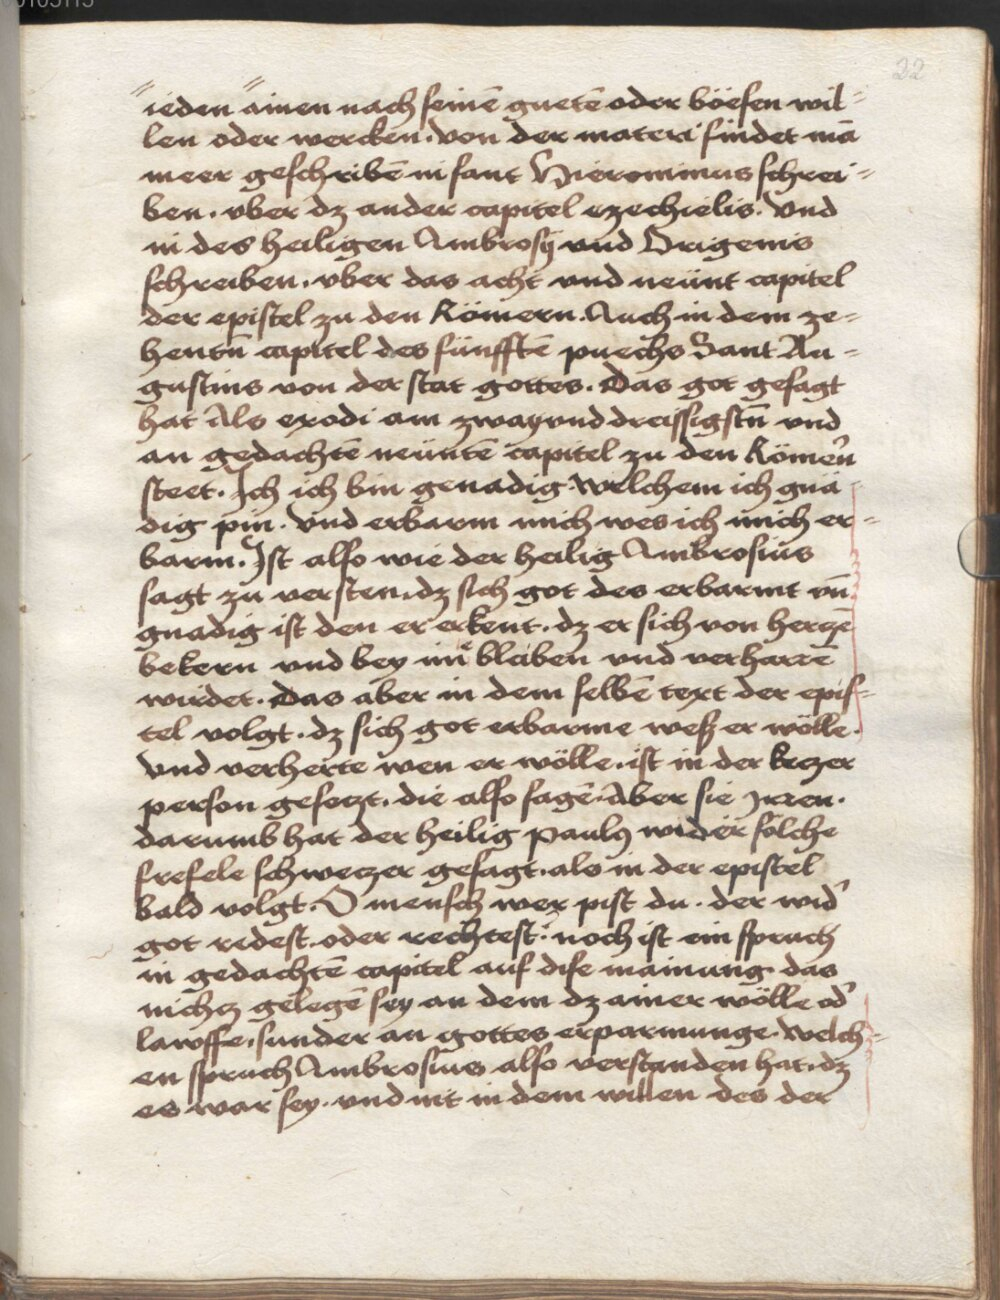 22
ieden ainen nach seinē guetē oder böesen wil=
len oder wercken. von der materi findet mā
meer geschribē in sant Hieronimus schrei=
ben. vber dz ander capitel ezechielis. Vnd
in des heiligen Ambrosij vnd Origenis
schreiben. vber das acht vnd neünt capitel
der epistel zu den Römern. Auch in dem ze=
hentn̄ capitel des fünfftē puechs Sant Au=
gustins von der stat gottes. Das got gesagt
hat Als exodi am zwayvnddreissigstn̄ vnd
an gedachtē neüntē capitel zu den Römern̄
steet. Ich ich bin genadig. welchem ich gna=
dig pin. vnd erbarm mich wes ich mich er=
barm. Ist also wie der heilig Ambrosius
sagt zu versten. dz sich got des erbarmt vn̄
gnadig ist den er erkent. dz er sich von herczē
bekern vnd bey im bleiben vnd verharrē
wirdet. Das aber in dem selbē text der epis=
tel volgt. dz sich got erbarme weß er wölle.
Vnd verherte wen er wölle. ist in der keczer
person geseczt. die also sagē. Aber sie Irren.
darumb hat der heilig paulꝰ wider sölche
frefele schweczer gesagt. als in der epistel
bald volgt. O mensch wer pist du. der wid̄
got redest. oder rechtest. noch ist ein spruch
in gedachtē capitel auf dise mainung. das
nichcz gelegē sey an dem dz ainer wölle od̄
lawffe. sunder an gottes erparmunge. welch=
en spruch Ambrosius also verstanden hat. dz
es war sey. vnd nit in dem willen des der